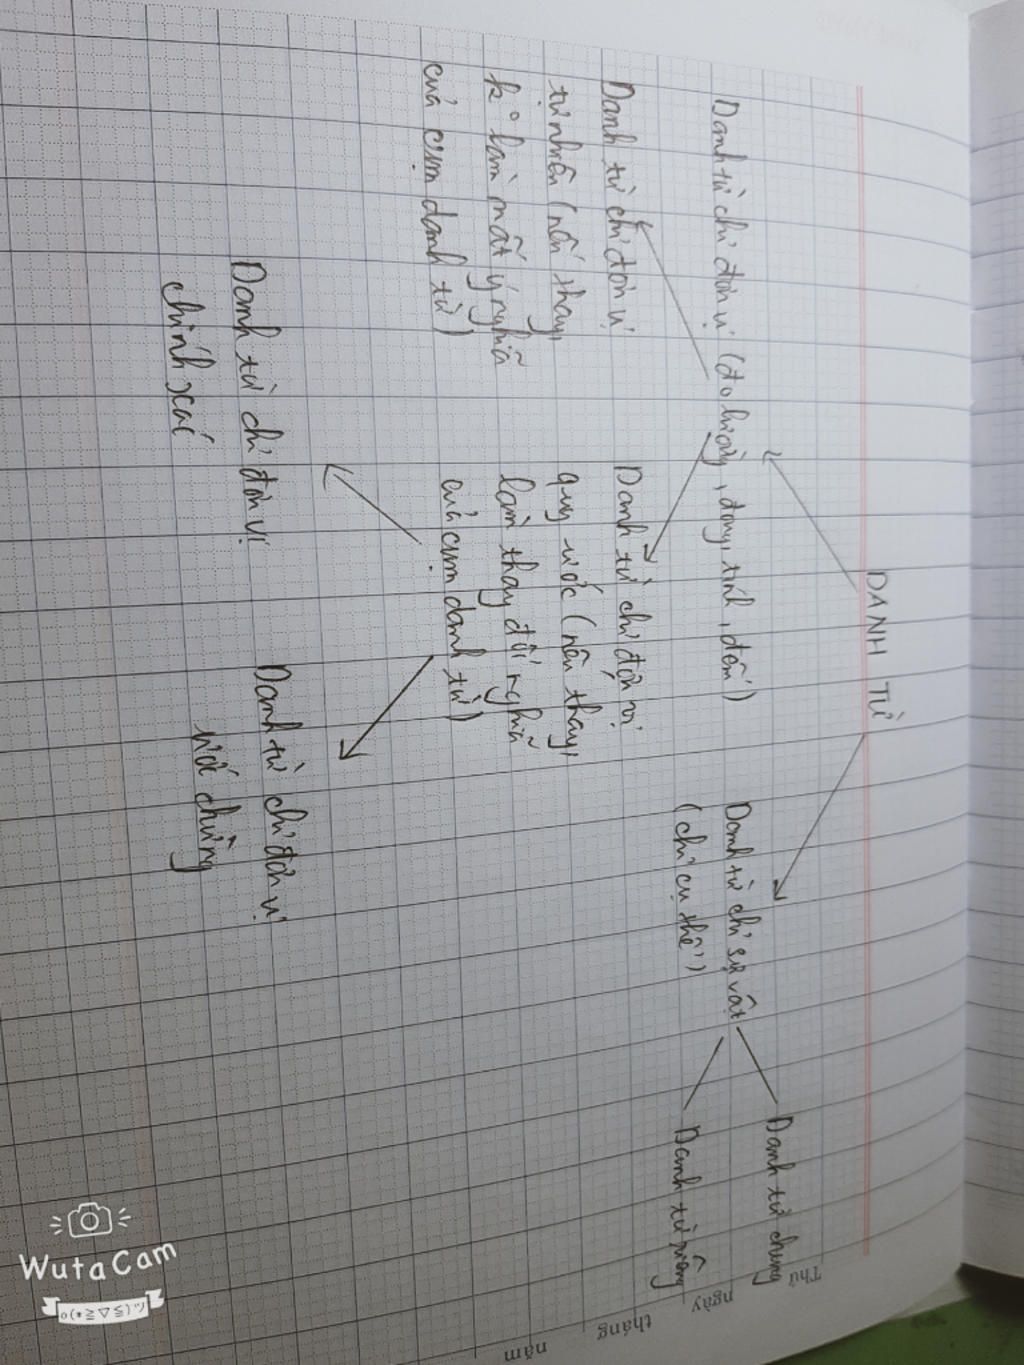 DANH TỪ
Danh từ chỉ đơn vị (đo lường, đong, tính, đếm)
Danh từ chỉ sự vật
(chỉ cụ thể)
Danh từ chung
Danh từ riêng
Danh từ chỉ đơn vị
tự nhiên (nếu thay,
k° làm mất ý nghĩa
của cụm danh từ)
Danh từ chỉ đơn vị
quy ước (nếu thay,
làm thay đổi nghĩa
của cụm danh từ)
Danh từ chỉ đơn vị
chính xác
Danh từ chỉ đơn vị
ước chừng
Thứ
ngày
tháng
năm
WutaCam